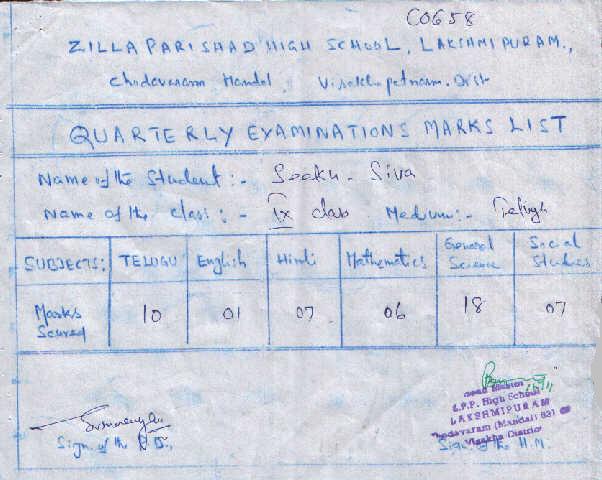 C0658
ZILLA PARISHAD HIGH SCHOOL, LAKSHMIPURAM.,
Chodavaram Mandal, Visakhapatnam. Dist
QUARTERLY EXAMINATIONS MARKS LIST
Name of the Student:- Seeku - Siva
Name of the class:- IX class Medium:- Telugu
SUBJECTS: TELUGU English Hindi Mathematics General Science Social Studies
Marks Scored 10 01 07 06 18 07
Z.P.P. High School
LAKSHMIPURAM
Chodavaram (Mandal)
Visakha District
Sign. of the
Sign. of the H.M.